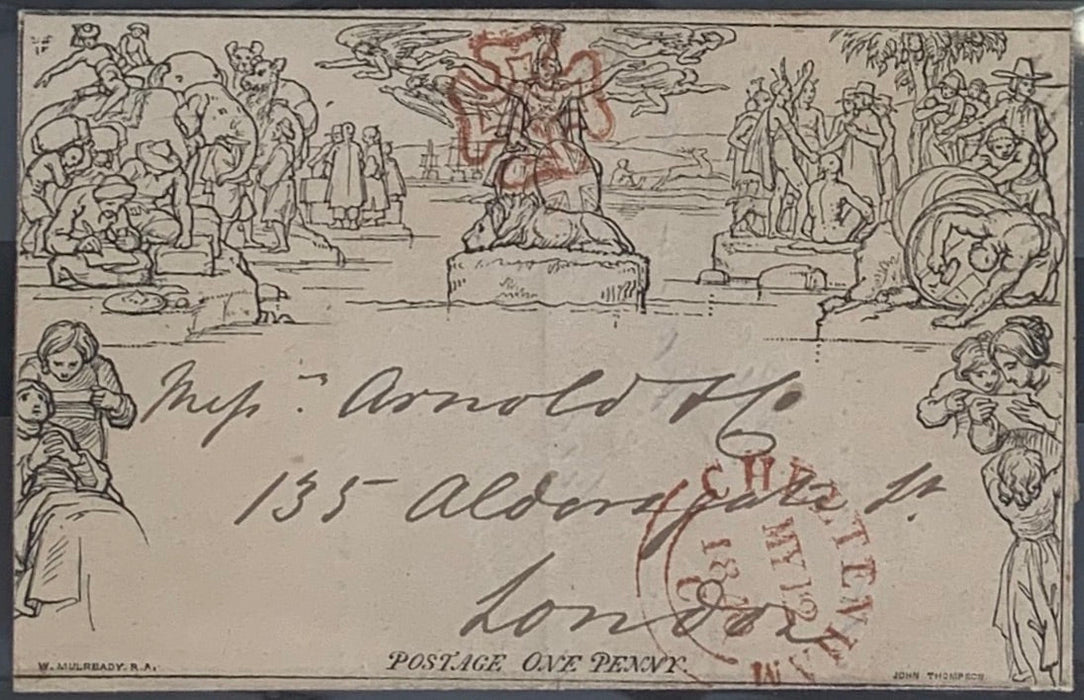 Messrs. Arnold & Co
135 Aldersgate St.
London
MY 12
184
POSTAGE ONE PENNY.
W. MULREADY. R.A.
JOHN THOMPSON